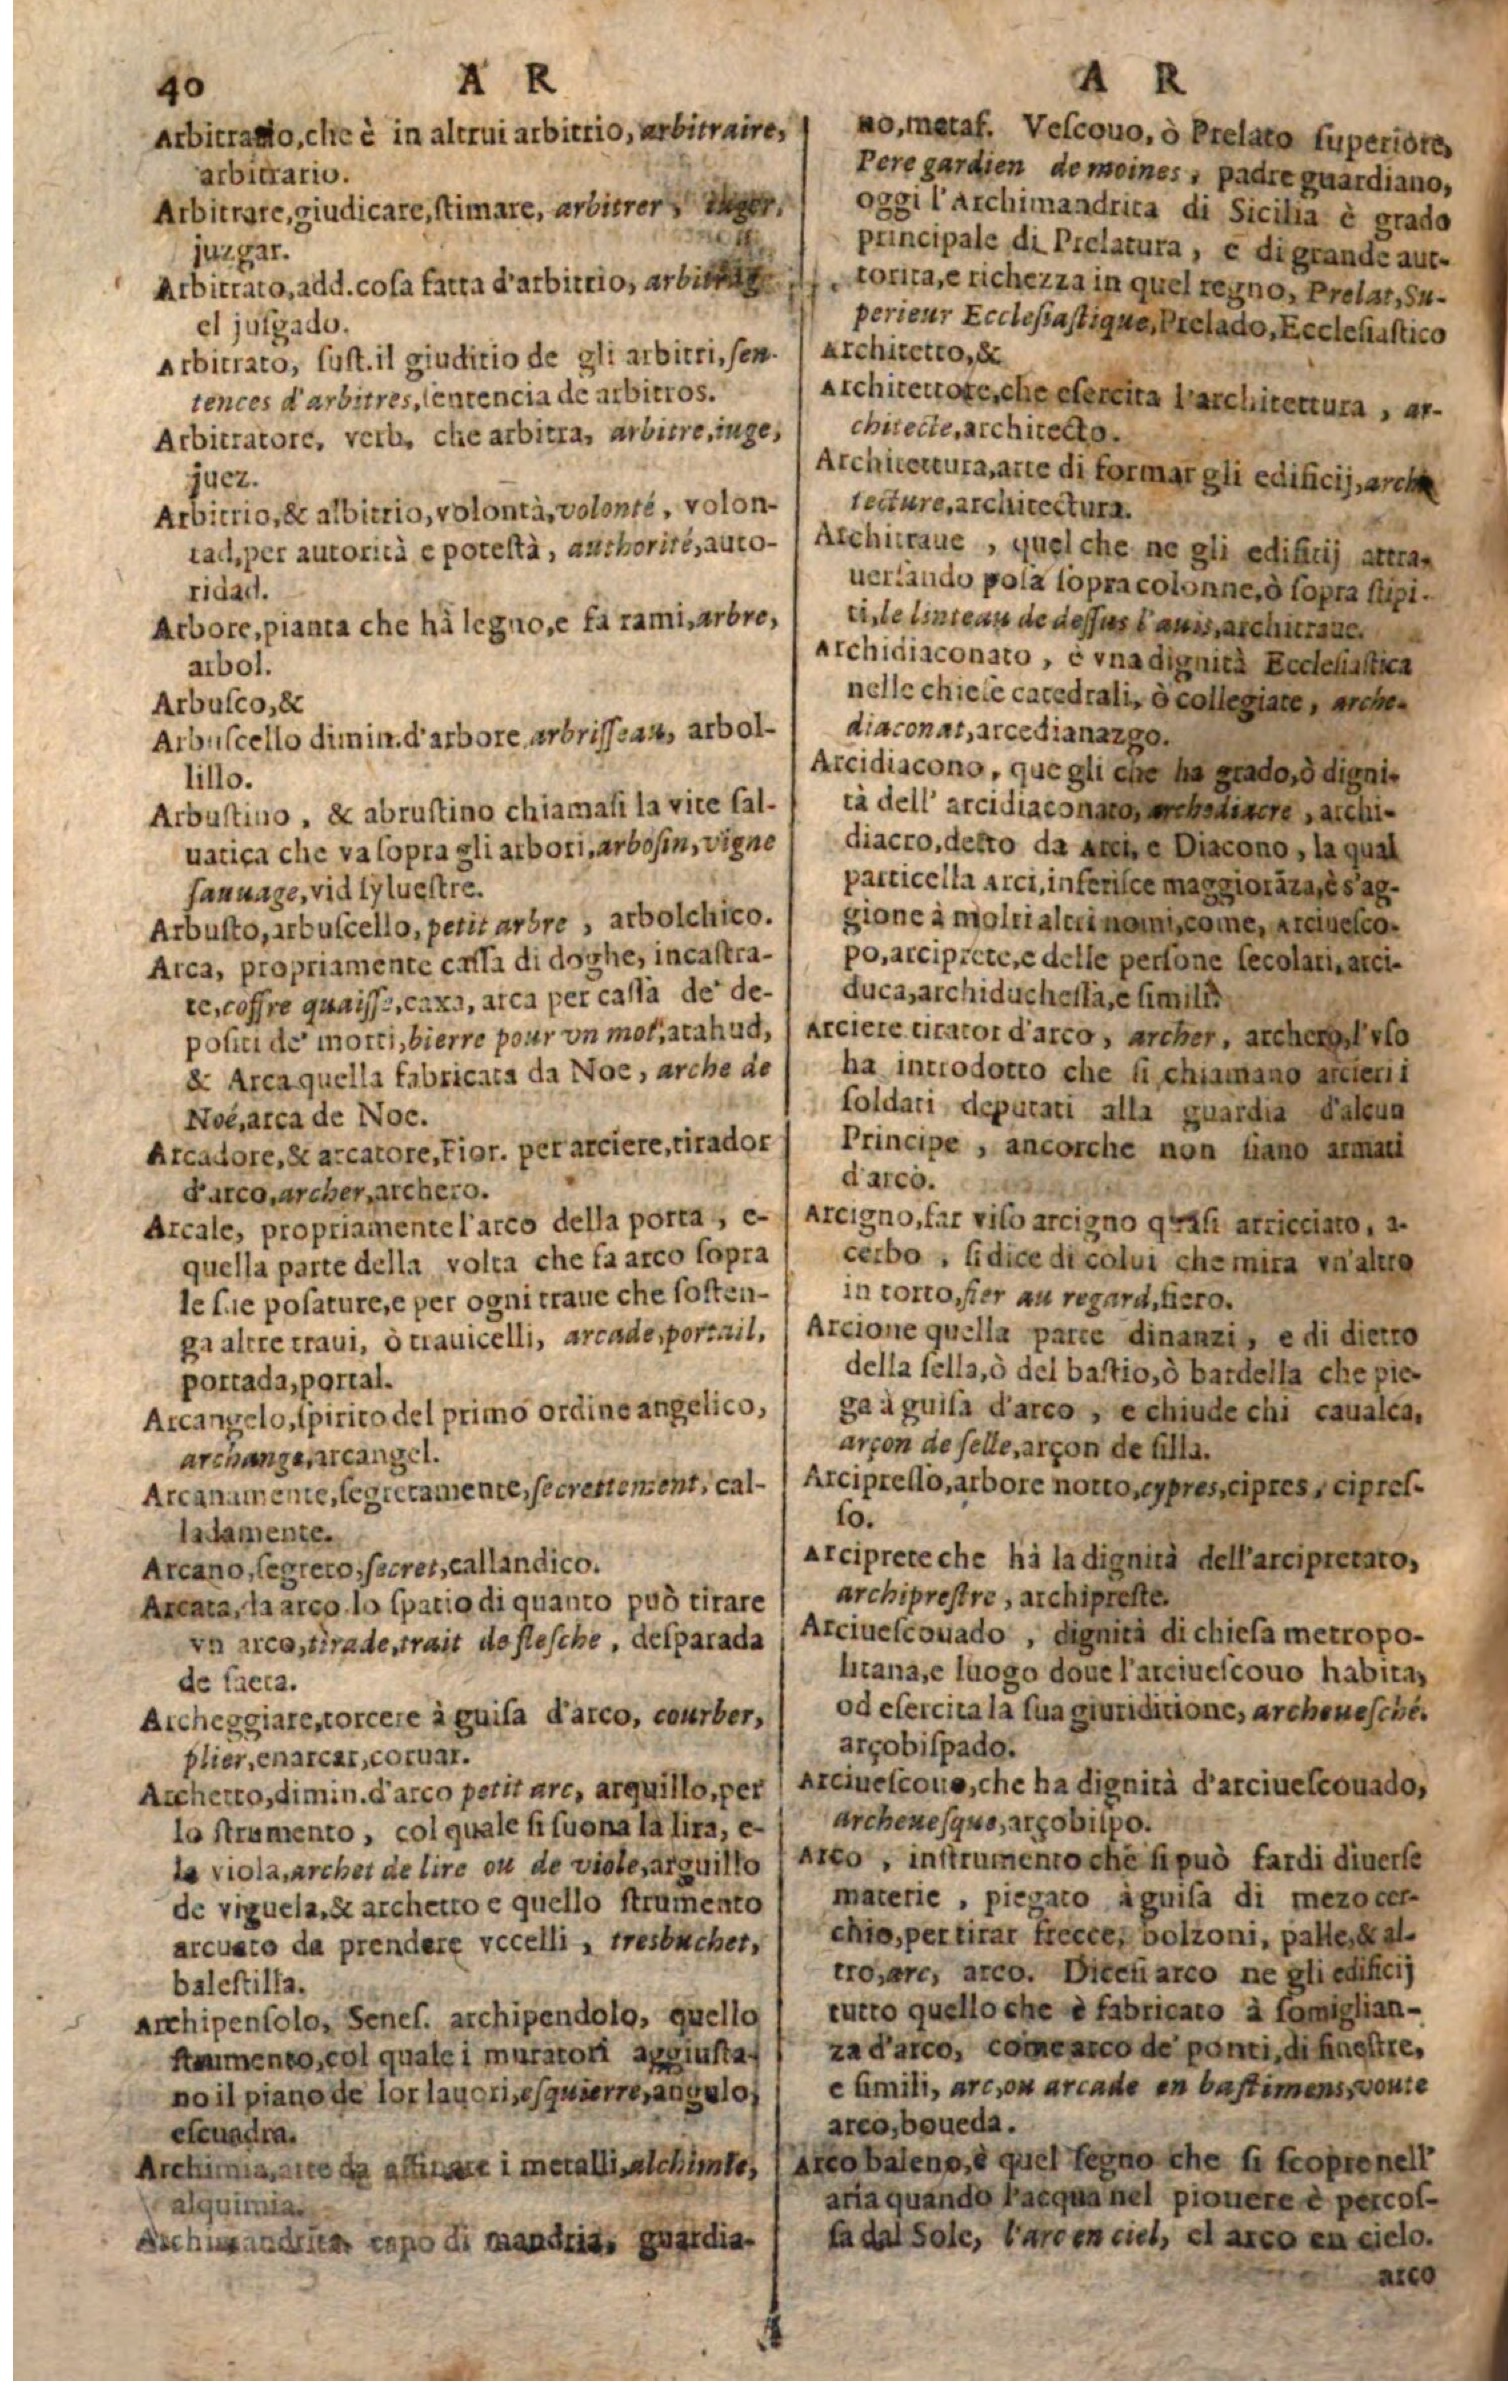 40 A R
Arbitrario, che è in altrui arbitrio, arbitraire,
arbitrario.
Arbitrare, giudicare, ſtimare, arbitrer, iuger,
juzgar.
Arbitrato, add. coſa fatta d'arbitrio,
el juſgado.
Arbitrato, ſuſt. il giuditio de gli arbitri, ſen-
tences d'arbitres, ſentencia de arbitros.
Arbitratore, verb, che arbitra, arbitre, iuge,
juez.
Arbitrio, & albitrio, volontà, volonté, volon-
tad, per autorità e poteſtà, authorité, auto-
ridad.
Arbore, pianta che hà legno, e fa rami, arbre,
arbol.
Arbuſco, &
Arbuſcello dimin. d'arbore arbriſſeau, arbol-
lillo.
Arbuſtino, & abruſtino chiamaſi la vite ſal-
uatica che va ſopra gli arbori, arboſin, vigne
ſauuage, vid ſylueſtre.
Arbuſto, arbuſcello, petit arbre, arbolchico.
Arca, propriamente caſſa di doghe, incaſtra-
te, coffre quaiſſe, caxa, arca per caſſa de' de-
poſiti de' morti, bierre pour vn mot, atahud,
& Arca quella fabricata da Noe, arche de
Noé, arca de Noe.
Arcadore, & arcatore, Fior. per arciere, tirador
d'arco, archer, archero.
Arcale, propriamente l'arco della porta, e-
quella parte della volta che fa arco ſopra
le ſue poſature, e per ogni traue che ſoſten-
ga altre traui, ò trauicelli, arcade, portail,
portada, portal.
Arcangelo, ſpirito del primo ordine angelico,
archange, arcangel.
Arcanamente, ſegretamente, ſecrettement, cal-
ladamente.
Arcano, ſegreto, ſecret, callandico.
Arcata, da arco lo ſpatio di quanto può tirare
vn arco, tirade, trait de fleſche, deſparada
de ſaeta.
Archeggiare, torcere à guiſa d'arco, courber,
plier, enarcar, coruar.
Archetto, dimin. d'arco petit arc, arquillo, per
lo ſtrumento, col quale ſi ſuona la lira, e-
la viola, archet de lire ou de viole, arguillo
de viguela, & archetto e quello ſtrumento
arcuato da prendere vccelli, tresbuchet,
baleſtilla.
Archipenſolo, Seneſ. archipendolo, quello
ſtrumento, col quale i muratori aggiuſta-
no il piano de lor lauori, eſquierre, angulo,
eſcuadra.
Archimia, arte da affinare i metalli, alchimie,
alquimia.
Archimandrita, capo di mandria, guardia-
A R
no, metaf. Veſcouo, ò Prelato ſuperiore,
Pere gardien de moines, padre guardiano,
oggi l'Archimandrita di Sicilia è grado
principale di Prelatura, e di grande aut-
torita, e richezza in quel regno, Prelat, Su-
perieur Eccleſiaſtique, Prelado, Eccleſiaſtico
Architetto, &
Architettore, che eſercita l'architettura, ar-
chitecte, architecto.
Architettura, arte di formar gli edificij, archi
tecture, architectura.
Architraue, quel che ne gli edificij attra-
uerſando poſa ſopra colonne, ò ſopra ſtipi-
ti, le linteau de deſſus l'auis, architraue.
Archidiaconato, è vna dignità Eccleſiaſtica
nelle chieſe catedrali, ò collegiate, arche-
diaconat, arcedianazgo.
Arcidiacono, que gli che ha grado, ò digni-
tà dell' arcidiaconato, archediacre, archi-
diacro, detto da Arci, e Diacono, la qual
particella Arci, inferiſce maggiorāza, è s'ag-
gione à molti altri nomi, come, Arciueſco-
po, arciprete, e delle perſone ſecolari, arci-
duca, archiducheſſa, e ſimili.
Arciere tirator d'arco, archer, archero, l'vſo
ha introdotto che ſi chiamano arcieri i
ſoldati deputati alla guardia d'alcun
Principe, ancorche non ſiano armati
d'arco.
Arcigno, far viſo arcigno quaſi arricciato, a-
cerbo, ſi dice di colui che mira vn'altro
in torto, fier au regard, fiero.
Arcione quella parte dinanzi, e di dietro
della ſella, ò del baſtio, ò bardella che pie-
ga à guiſa d'arco, e chiude chi caualca,
arçon de ſelle, arçon de ſilla.
Arcipreſſo, arbore notto, cypres, cipres, cipreſ-
ſo.
Arciprete che hà la dignità dell'arcipretato,
archipreſtre, archipreſte.
Arciueſcouado, dignità di chieſa metropo-
litana, e luogo doue l'arciueſcouo habita,
od eſercita la ſua giuriditione, archeueſché.
arçobiſpado.
Arciueſcouo, che ha dignità d'arciueſcouado,
archeueſque, arçobiſpo.
Arco, inſtrumento che ſi può far di diuerſe
materie, piegato à guiſa di mezo cer-
chio, per tirar frecce, bolzoni, palle, & al-
tro, arc, arco. Diceſi arco ne gli edificij
tutto quello che è fabricato à ſomiglian-
za d'arco, come arco de' ponti, di fineſtre,
e ſimili, arc, ou arcade en baſtimens, voute
arco, boueda.
Arco baleno, è quel ſegno che ſi ſcopre nell'
aria quando l'acqua nel piouere è percoſ-
ſa dal Sole, l'arc en ciel, el arco en cielo.
arco